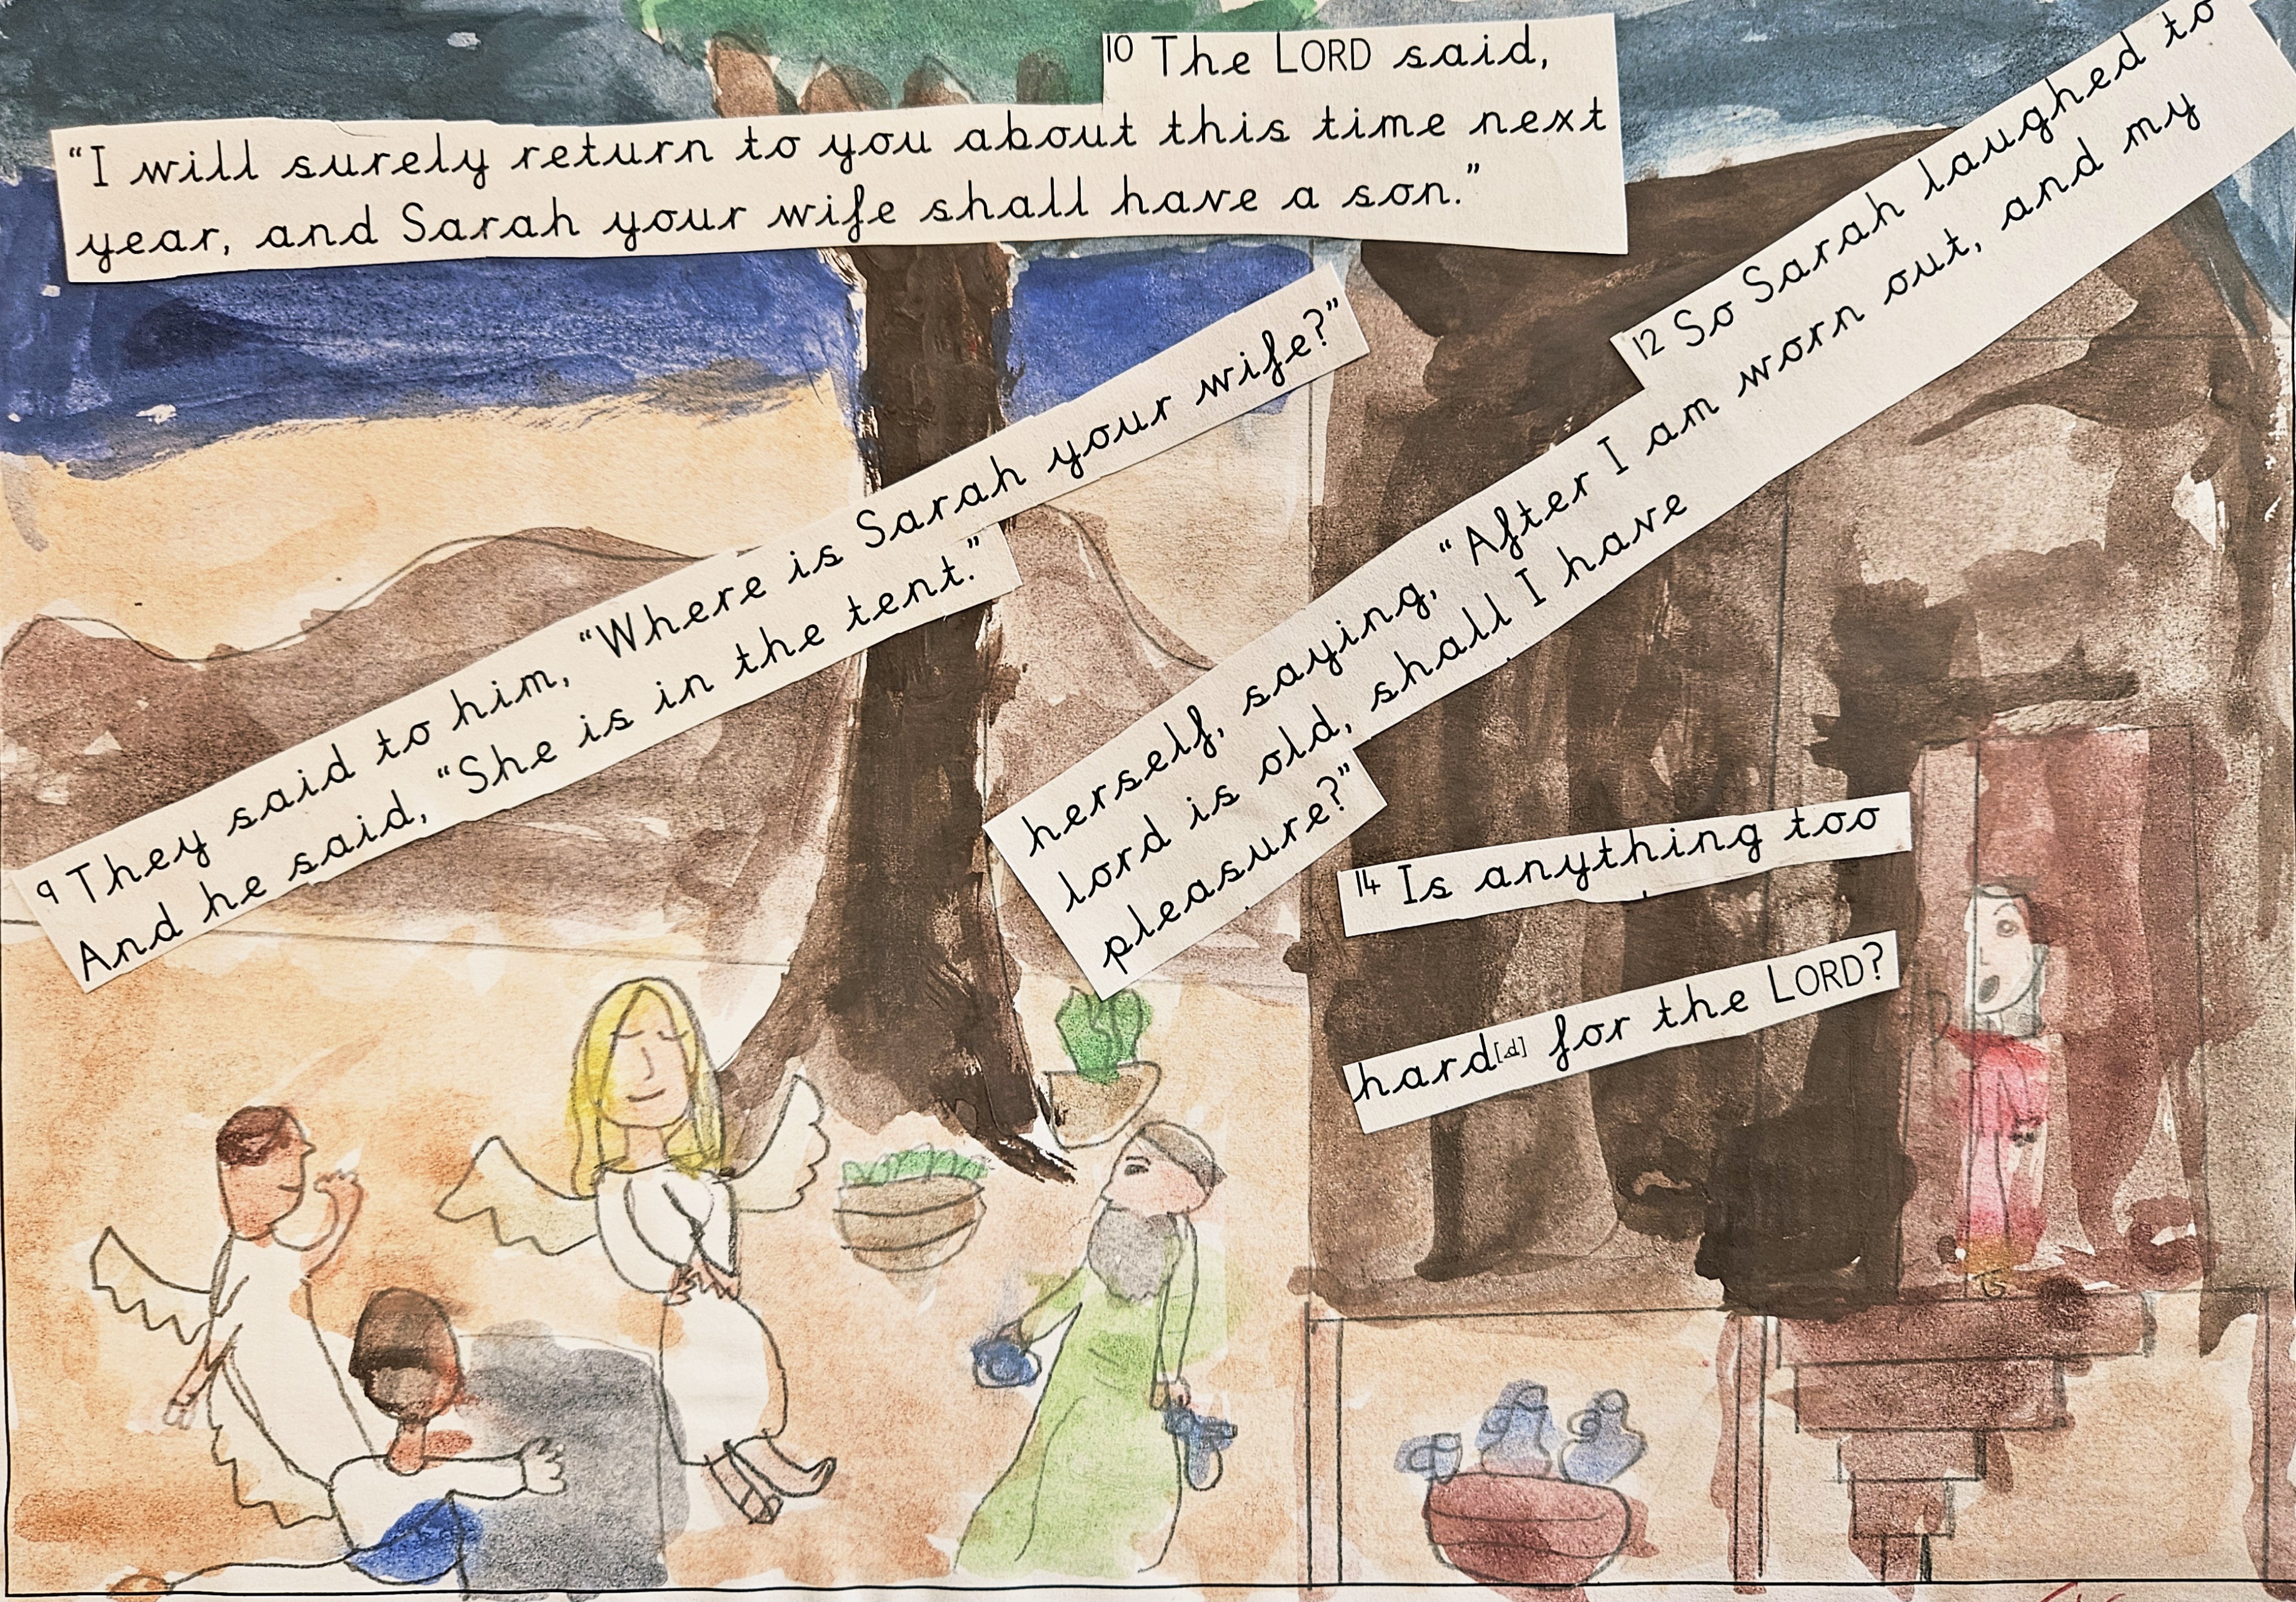 ⁹ They said to him, “Where is Sarah your wife?”
And he said, “She is in the tent.”
¹⁰ The LORD said,
“I will surely return to you about this time next
year, and Sarah your wife shall have a son.”
¹² So Sarah laughed to
herself, saying, “After I am worn out, and my
lord is old, shall I have
pleasure?”
¹⁴ Is anything too
hard[d] for the LORD?